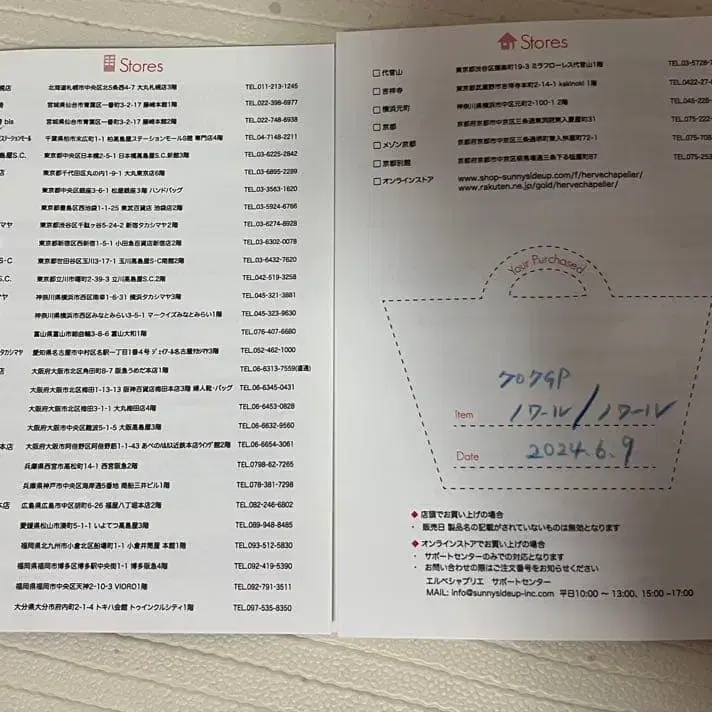 Stores
幌店 北海道札幌市中央区北5条西4-7 大丸札幌店3階 TEL.011-213-1245
宮城県仙台市青葉区一番町3-2-17 藤崎本館1階 TEL.022-398-6977
bis 宮城県仙台市青葉区一番町3-2-17 藤崎本館2階 TEL.022-748-6938
ステーションモール 千葉県柏市末広町1-1 柏高島屋ステーションモールS館 専門店4階 TEL.04-7148-2211
島屋S.C. 東京都中央区日本橋2-5-1 日本橋高島屋S.C.新館3階 TEL.03-6225-2842
店 東京都千代田区丸の内1-9-1 大丸東京店6階 TEL.03-6895-2289
東京都中央区銀座3-6-1 松屋銀座3階 ハンドバッグ TEL.03-3563-1620
東京都豊島区西池袋1-1-25 東武百貨店 池袋店2階 TEL.03-5924-6766
マヤ 東京都渋谷区千駄ヶ谷5-24-2 新宿タカシマヤ2階 TEL.03-6274-8928
東京都新宿区西新宿1-5-1 小田急百貨店新宿店2階 TEL.03-6302-0078
S・C 東京都世田谷区玉川3-17-1 玉川高島屋S・C南館2階 TEL.03-6432-7620
S.C. 東京都立川市曙町2-39-3 立川高島屋S.C.2階 TEL.042-519-3258
ヤ 神奈川県横浜市西区南幸1-6-31 横浜タカシマヤ3階 TEL.045-321-3881
神奈川県横浜市西区みなとみらい3-5-1 マークイズみなとみらい1階 TEL.045-323-9630
富山県富山市総曲輪3-8-6 富山大和1階 TEL.076-407-6680
タカシマヤ 愛知県名古屋市中村区名駅一丁目1番4号 ジェイアール名古屋タカシマヤ3階 TEL.052-462-1000
店 大阪府大阪市北区角田町8-7 阪急うめだ本店1階 TEL.06-6313-7559(直通)
大阪府大阪市北区梅田1-13-13 阪神百貨店梅田本店3階 婦人靴・バッグ TEL.06-6345-0431
大阪府大阪市北区梅田3-1-1 大丸梅田店4階 TEL.06-6453-0828
大阪府大阪市中央区難波5-1-5 大阪高島屋3階 TEL.06-6632-9560
本店 大阪府大阪市阿倍野区阿倍野筋1-1-43 あべのハルカス近鉄本店ウイング館2階 TEL.06-6654-3061
兵庫県西宮市高松町14-1 西宮阪急2階 TEL.0798-62-7265
兵庫県神戸市中央区海岸通5番地 商船三井ビル1階 TEL.078-381-7298
本店 広島県広島市中区胡町6-26 福屋八丁堀本店2階 TEL.082-246-6802
愛媛県松山市湊町5-1-1 いよてつ高島屋3階 TEL.089-948-8485
福岡県北九州市小倉北区船場町1-1 小倉井筒屋 本館1階 TEL.093-512-5830
福岡県福岡市博多区博多駅中央街1-1 博多阪急4階 TEL.092-419-5390
福岡県福岡市中央区天神2-10-3 VIORO1階 TEL.092-791-3511
大分県大分市府内町2-1-4 トキハ会館 トゥインクルシティ1階 TEL.097-535-8350
Stores
代官山 東京都渋谷区猿楽町19-3 ミラフローレス代官山1階 TEL.03-5728-
吉祥寺 東京都武蔵野市吉祥寺本町2-14-1 kakinoki 1階 TEL.0422-27-
横浜元町 神奈川県横浜市中区元町2-100-1 2階 TEL.045-228-
京都 京都府京都市中京区三条通東洞院東入菱屋町31 TEL.075-222-
メゾン京都 京都府京都市中京区三条通柳馬場東入桝屋町72-1 TEL.075-708
京都別館 京都府京都市中京区柳馬場通三条下る槌屋町87 TEL.075-253
オンラインストア www.shop-sunnysideup.com/f/hervechapelier/
www.rakuten.ne.jp/gold/hervechapelier/
Your Purchased
707GP
Item ノワール/ノワール
Date 2024.6.9
◆ 店頭でお買い上げの場合
・ 販売日 製品名の記載がされていないものは無効となります
◆ オンラインストアでお買い上げの場合
・ サポートセンターのみでの対応となります
・ お問い合わせの際はご注文番号をお知らせください
エルベシャプリエ サポートセンター
MAIL: info@sunnysideup-inc.com 平日10:00 ～ 13:00、15:00 ~17:00